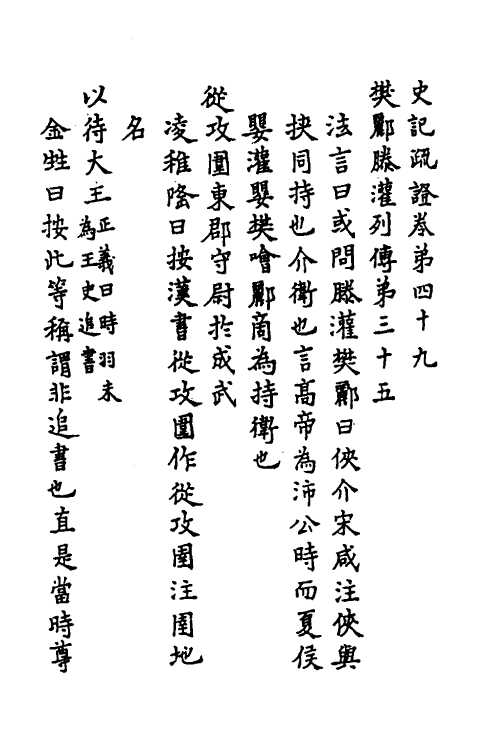 史記疏證卷第四十九
樊酈滕灌列傳第三十五
法言曰或問滕灌樊酈曰俠介宋咸注俠與
挾同持也介衛也言高帝為沛公時而夏侯
嬰灌嬰樊噲酈商為持衛也
從攻圍東郡守尉扵成武
凌稚隆曰按漢書從攻圍作從攻圉注圉地
名
以待大王正義曰時羽未為王史追書
金甡曰按此等稱謂非追書也直是當時尊